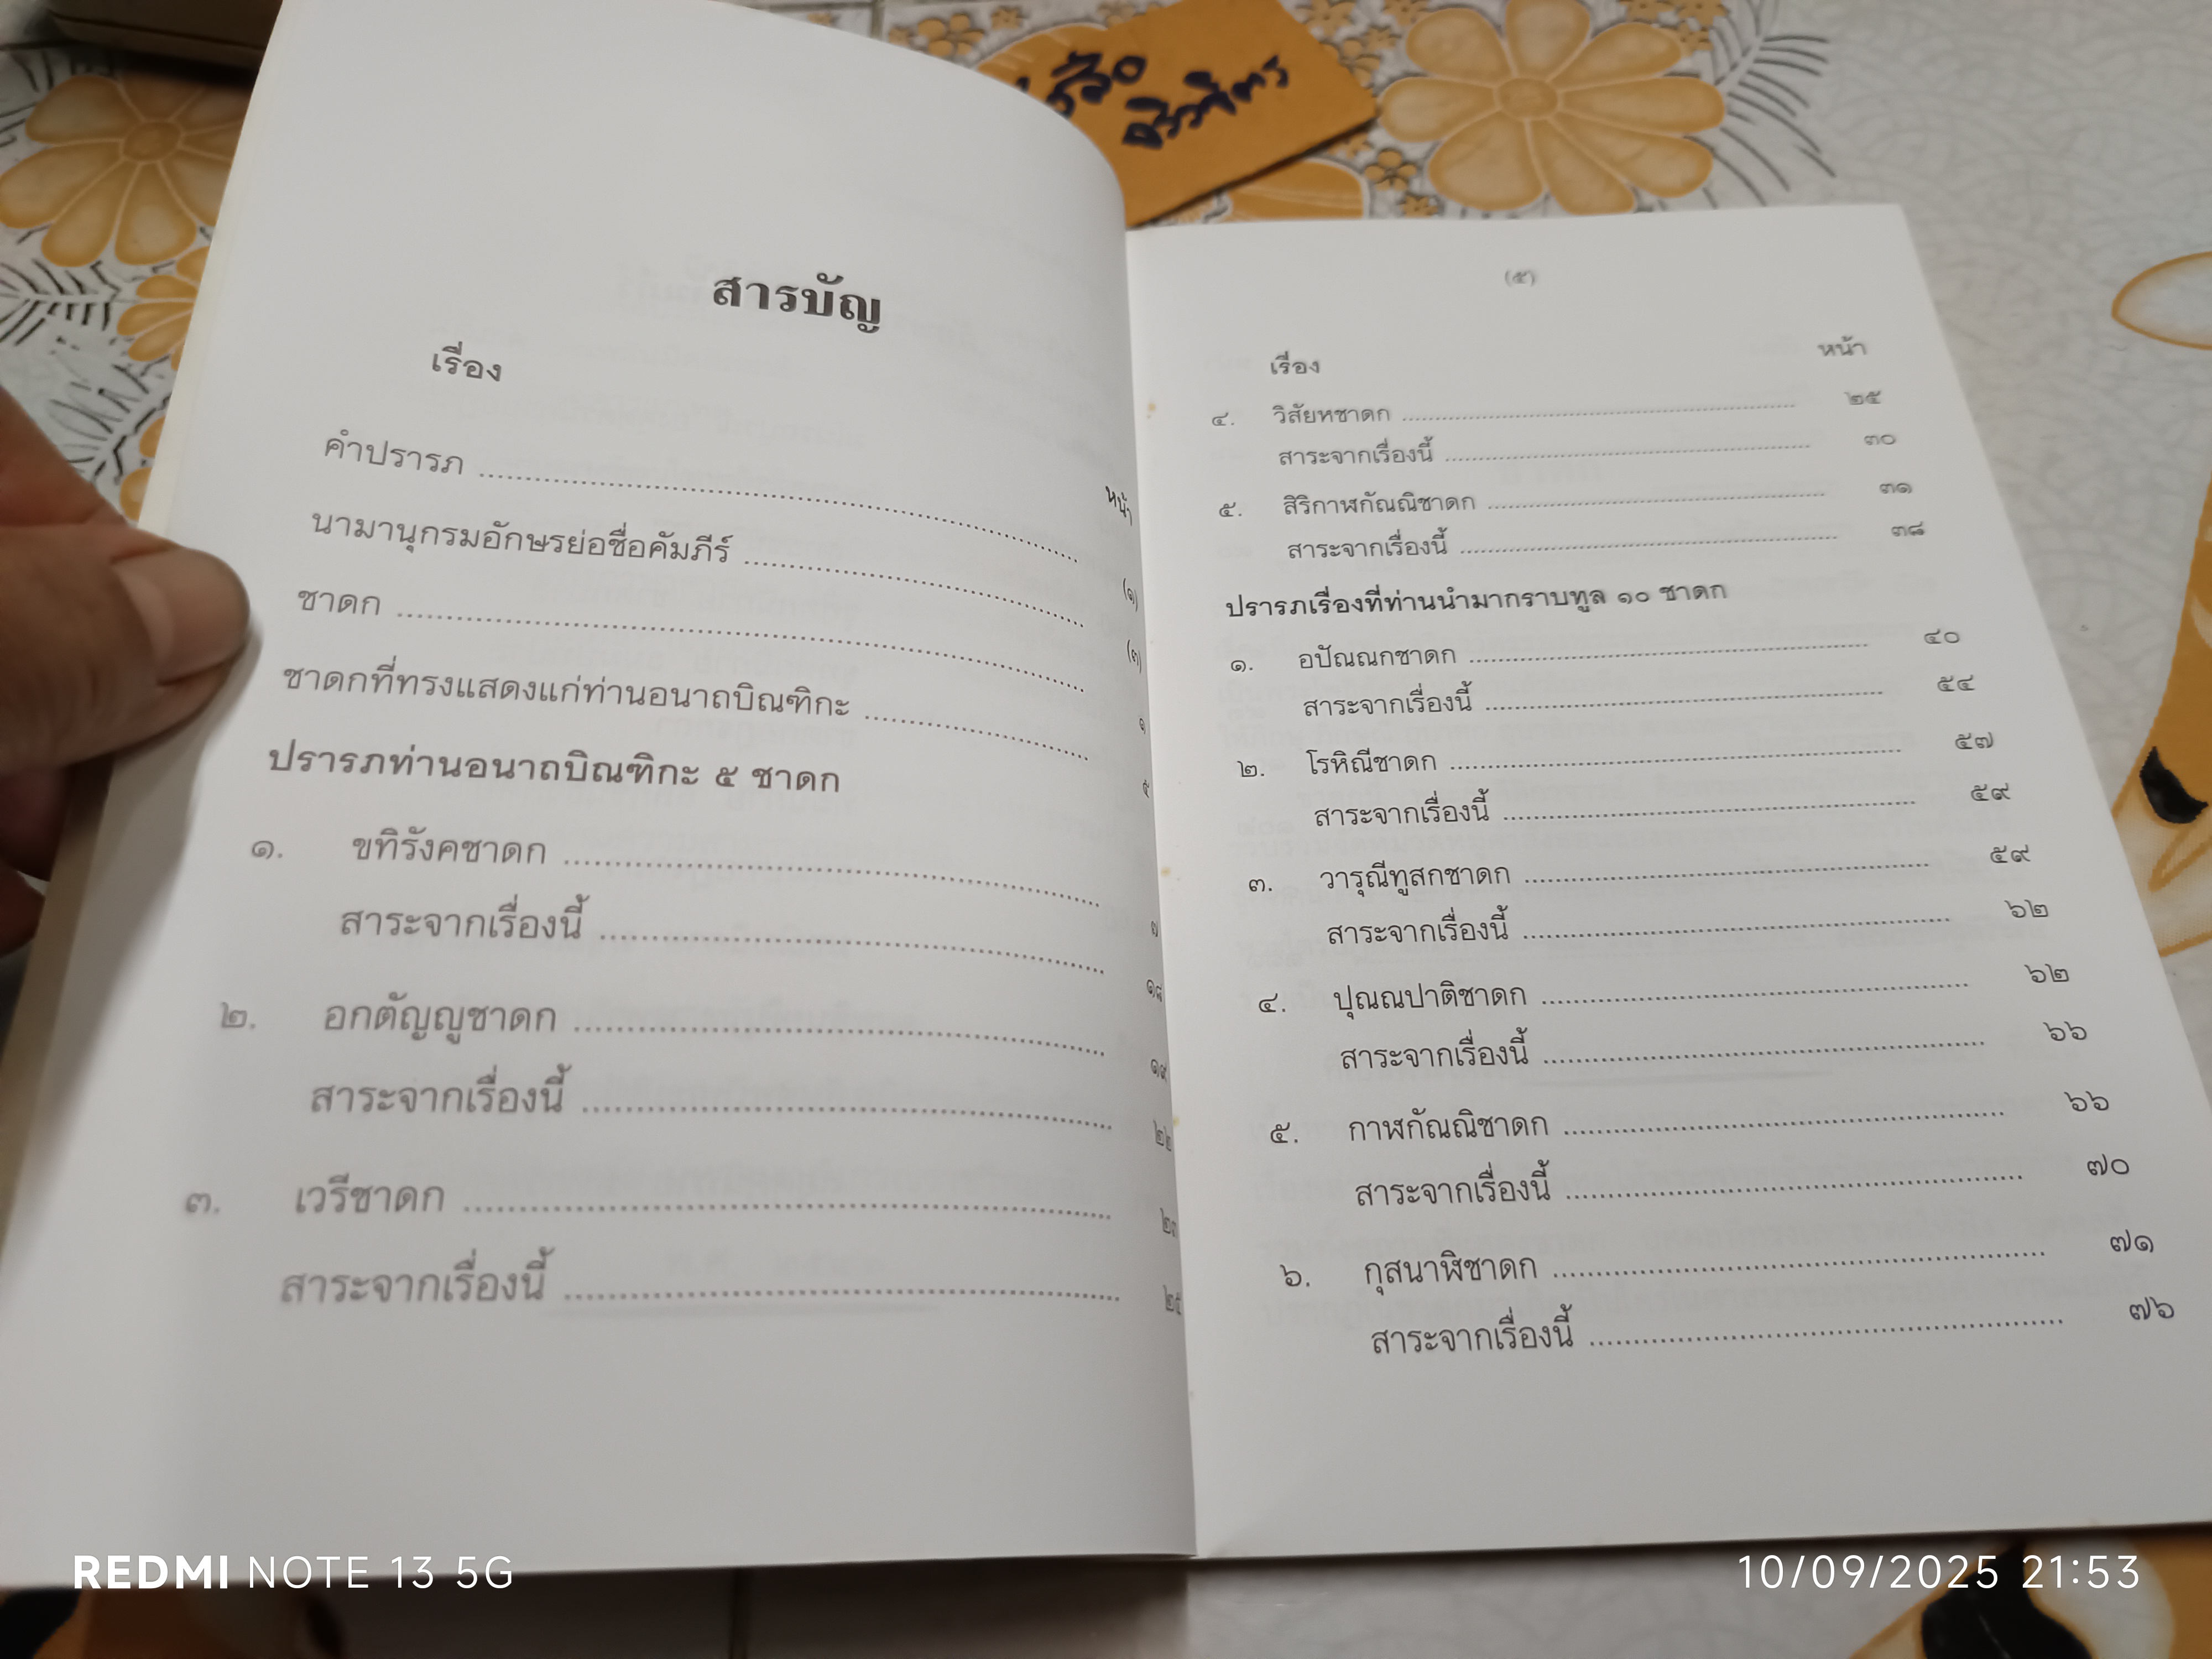 สารบัญ
เรื่อง
หน้า
คำปรารภ ........ (๑)
นามานุกรมอักษรย่อชื่อคัมภีร์ ........ (๓)
ชาดก ........ ๑
ชาดกที่ทรงแสดงแก่ท่านอนาถบิณฑิกะ ........ ๕
ปรารภท่านอนาถบิณฑิกะ ๕ ชาดก
๑. ขทิรังคชาดก ........ ๗
สาระจากเรื่องนี้ ........ ๑๘
๒. อกตัญญูชาดก ........ ๑๙
สาระจากเรื่องนี้ ........ ๒๒
๓. เวรีชาดก ........ ๒๓
สาระจากเรื่องนี้ ........ ๒๕
(๕)
เรื่อง หน้า
๔. วิสัยหชาดก ........ ๒๕
สาระจากเรื่องนี้ ........ ๓๐
๕. สิริกาฬกัณณิชาดก ........ ๓๑
สาระจากเรื่องนี้ ........ ๓๘
ปรารภเรื่องที่ท่านนำมากราบทูล ๑๐ ชาดก
๑. อปัณณกชาดก ........ ๔๐
สาระจากเรื่องนี้ ........ ๕๔
๒. โรหิณีชาดก ........ ๕๗
สาระจากเรื่องนี้ ........ ๕๙
๓. วารุณีทูสกชาดก ........ ๕๙
สาระจากเรื่องนี้ ........ ๖๒
๔. ปุณณปาติชาดก ........ ๖๒
สาระจากเรื่องนี้ ........ ๖๖
๕. กาฬกัณณิชาดก ........ ๖๖
สาระจากเรื่องนี้ ........ ๗๐
๖. กุสนาฬิชาดก ........ ๗๑
สาระจากเรื่องนี้ ........ ๗๖
REDMI NOTE 13 5G
10/09/2025 21:53